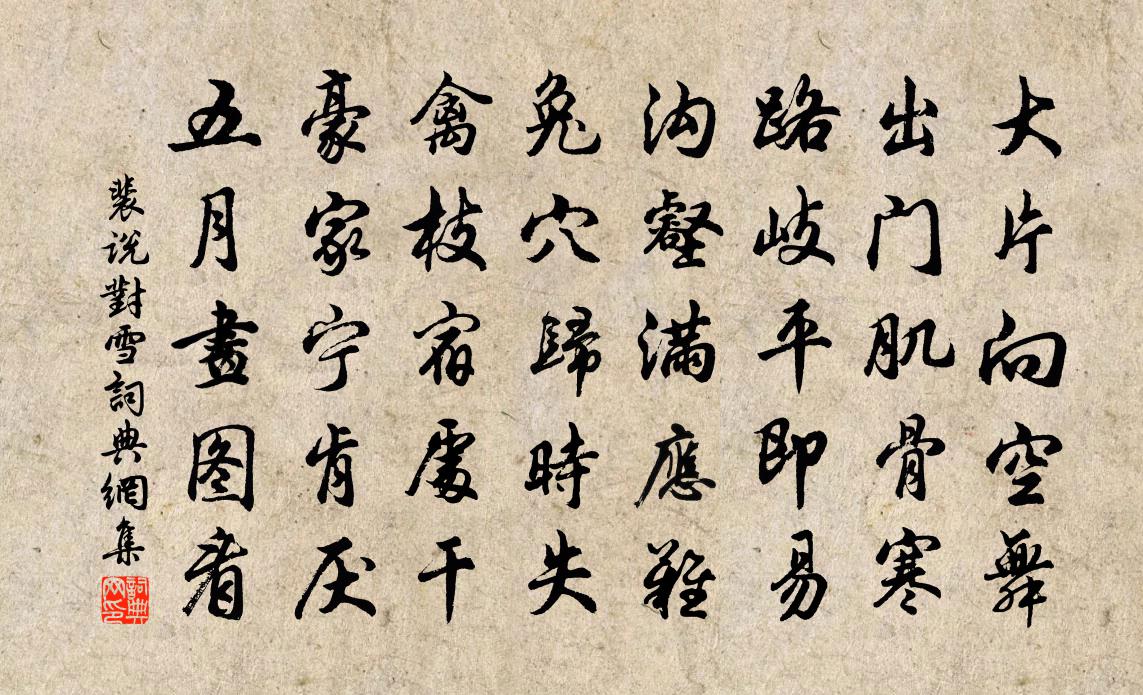 大片向空舞
出门肌骨寒
路岐平即易
沟壑满應難
兔穴歸時失
禽枝宿處干
豪家宁肯厌
五月畫图看
裴说對雪詞典網集
詞典网印